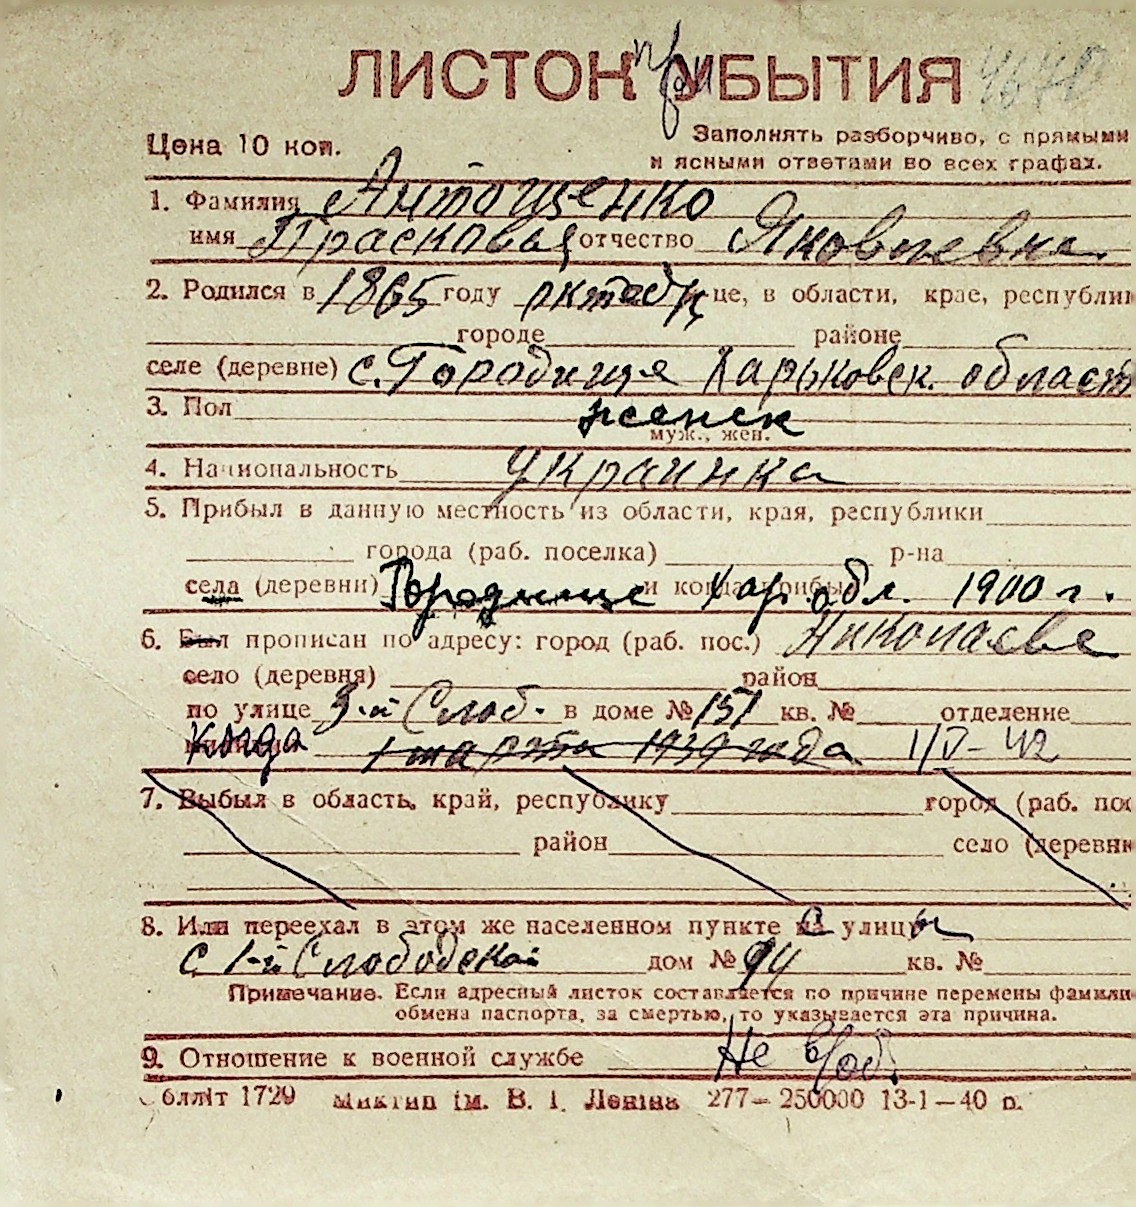 ЛИСТОК при УБЫТИЯ 4670
Цена 10 коп. Заполнять разборчиво, с прямыми
и ясными ответами во всех графах.
1. Фамилия Антощенко
имя Прасковья отчество Яковлевна
2. Родился в 1865 году октяб це, в области, крае, республи
городе районе
селе (деревне) с. Городище Харьковск. област
3. Пол женск
муж., жен.
4. Национальность украинка
5. Прибыл в данную местность из области, края, республики
города (раб. поселка) р-на
села (деревни) Городище и когда прибыл Хар. обл. 1900 г.
6. Был прописан по адресу: город (раб. пос.) Николаеве
село (деревня) район
по улице 3-й Слоб. в доме № 151 кв. № отделение
Когда 1 марта 1939 года 1/V-42
7. Выбыл в область, край, республику город (раб. пос
район село (деревня
8. Или переехал в этом же населенном пункте с улицы
с 1-й Слободской дом № 94 кв. №
Примечание. Если адресный листок составляется по причине перемены фамили
обмена паспорта, за смертью, то указывается эта причина.
9. Отношение к военной службе Не в/об.
Обліт 1729 Миктип ім. В. І. Леніна 277—250000 13-1—40 р.